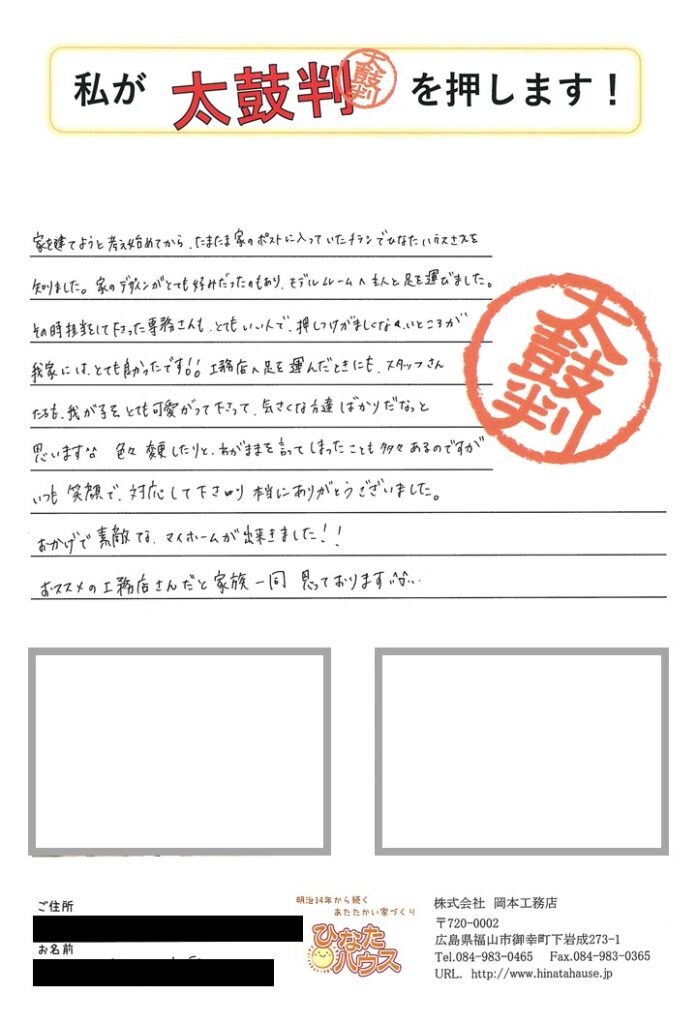 私が 太鼓判 太鼓判 を押します！
家を建てようと考え始めてから、たまたま家のポストに入っていたチラシでひなたハウスさんを
知りました。家のデザインがとても好みだったのもあり、モデルルームへ主人と足を運びました。
その時担当をして下さった専務さんも、とてもいい人で、押しつけがましくないところが
我家には、とても良かったです!! 工務店へ足を運んだときにも、スタッフさん
たちも、我が子を、とても可愛がって下さって、気さくな方達ばかりだなっと
思います^^ 色々変更したりと、わがままを言ってしまったことも多々あるのですが
いつも笑顔で、対応して下さり本当にありがとうございました。
おかげで素敵な、マイホームが出来きました!!
おススメの工務店さんだと家族一同 思っております^^
太鼓判
ご住所
お名前
明治34年から続く
あたたかい家づくり
ひなた
ハウス
株式会社 岡本工務店
〒720-0002
広島県福山市御幸町下岩成273-1
Tel.084-983-0465 Fax.084-983-0365
URL. http://www.hinatahause.jp